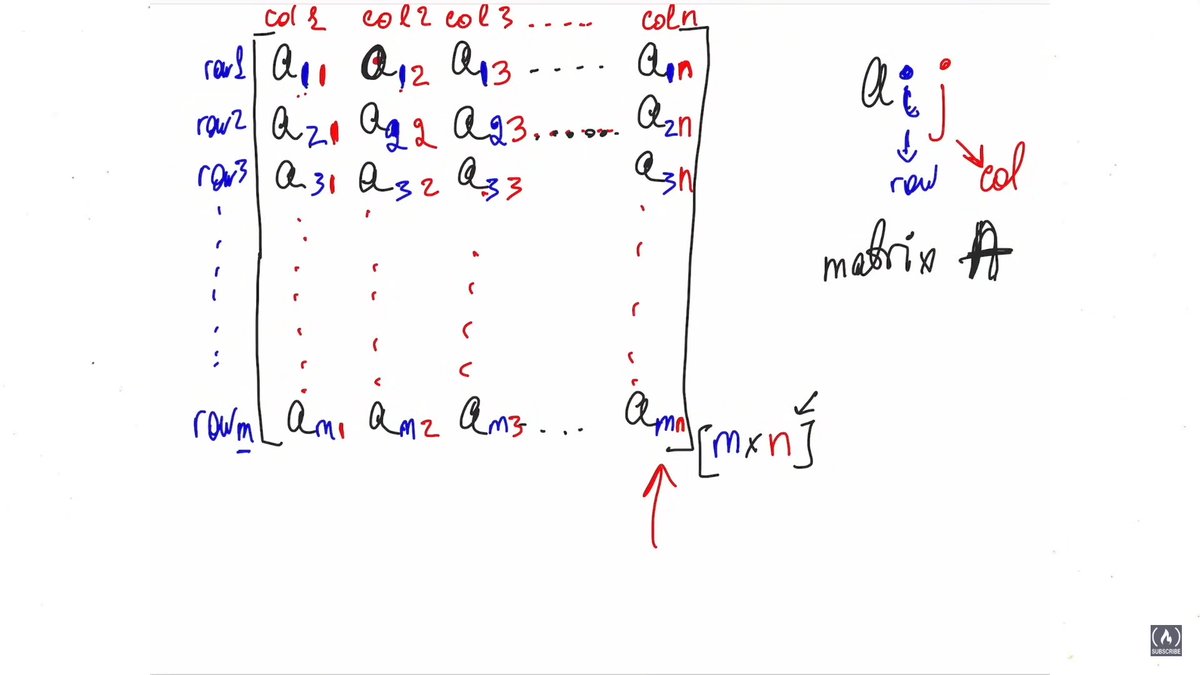 col 1 col 2 col 3 ..... col n
row1 a11 a12 a13 ---- a1n
row2 a21 a22 a23 ........ a2n
row3 a31 a32 a33 a3n
rowm am1 am2 am3 ... amn
[m×n]
aij
row col
matrix A
SUBSCRIBE